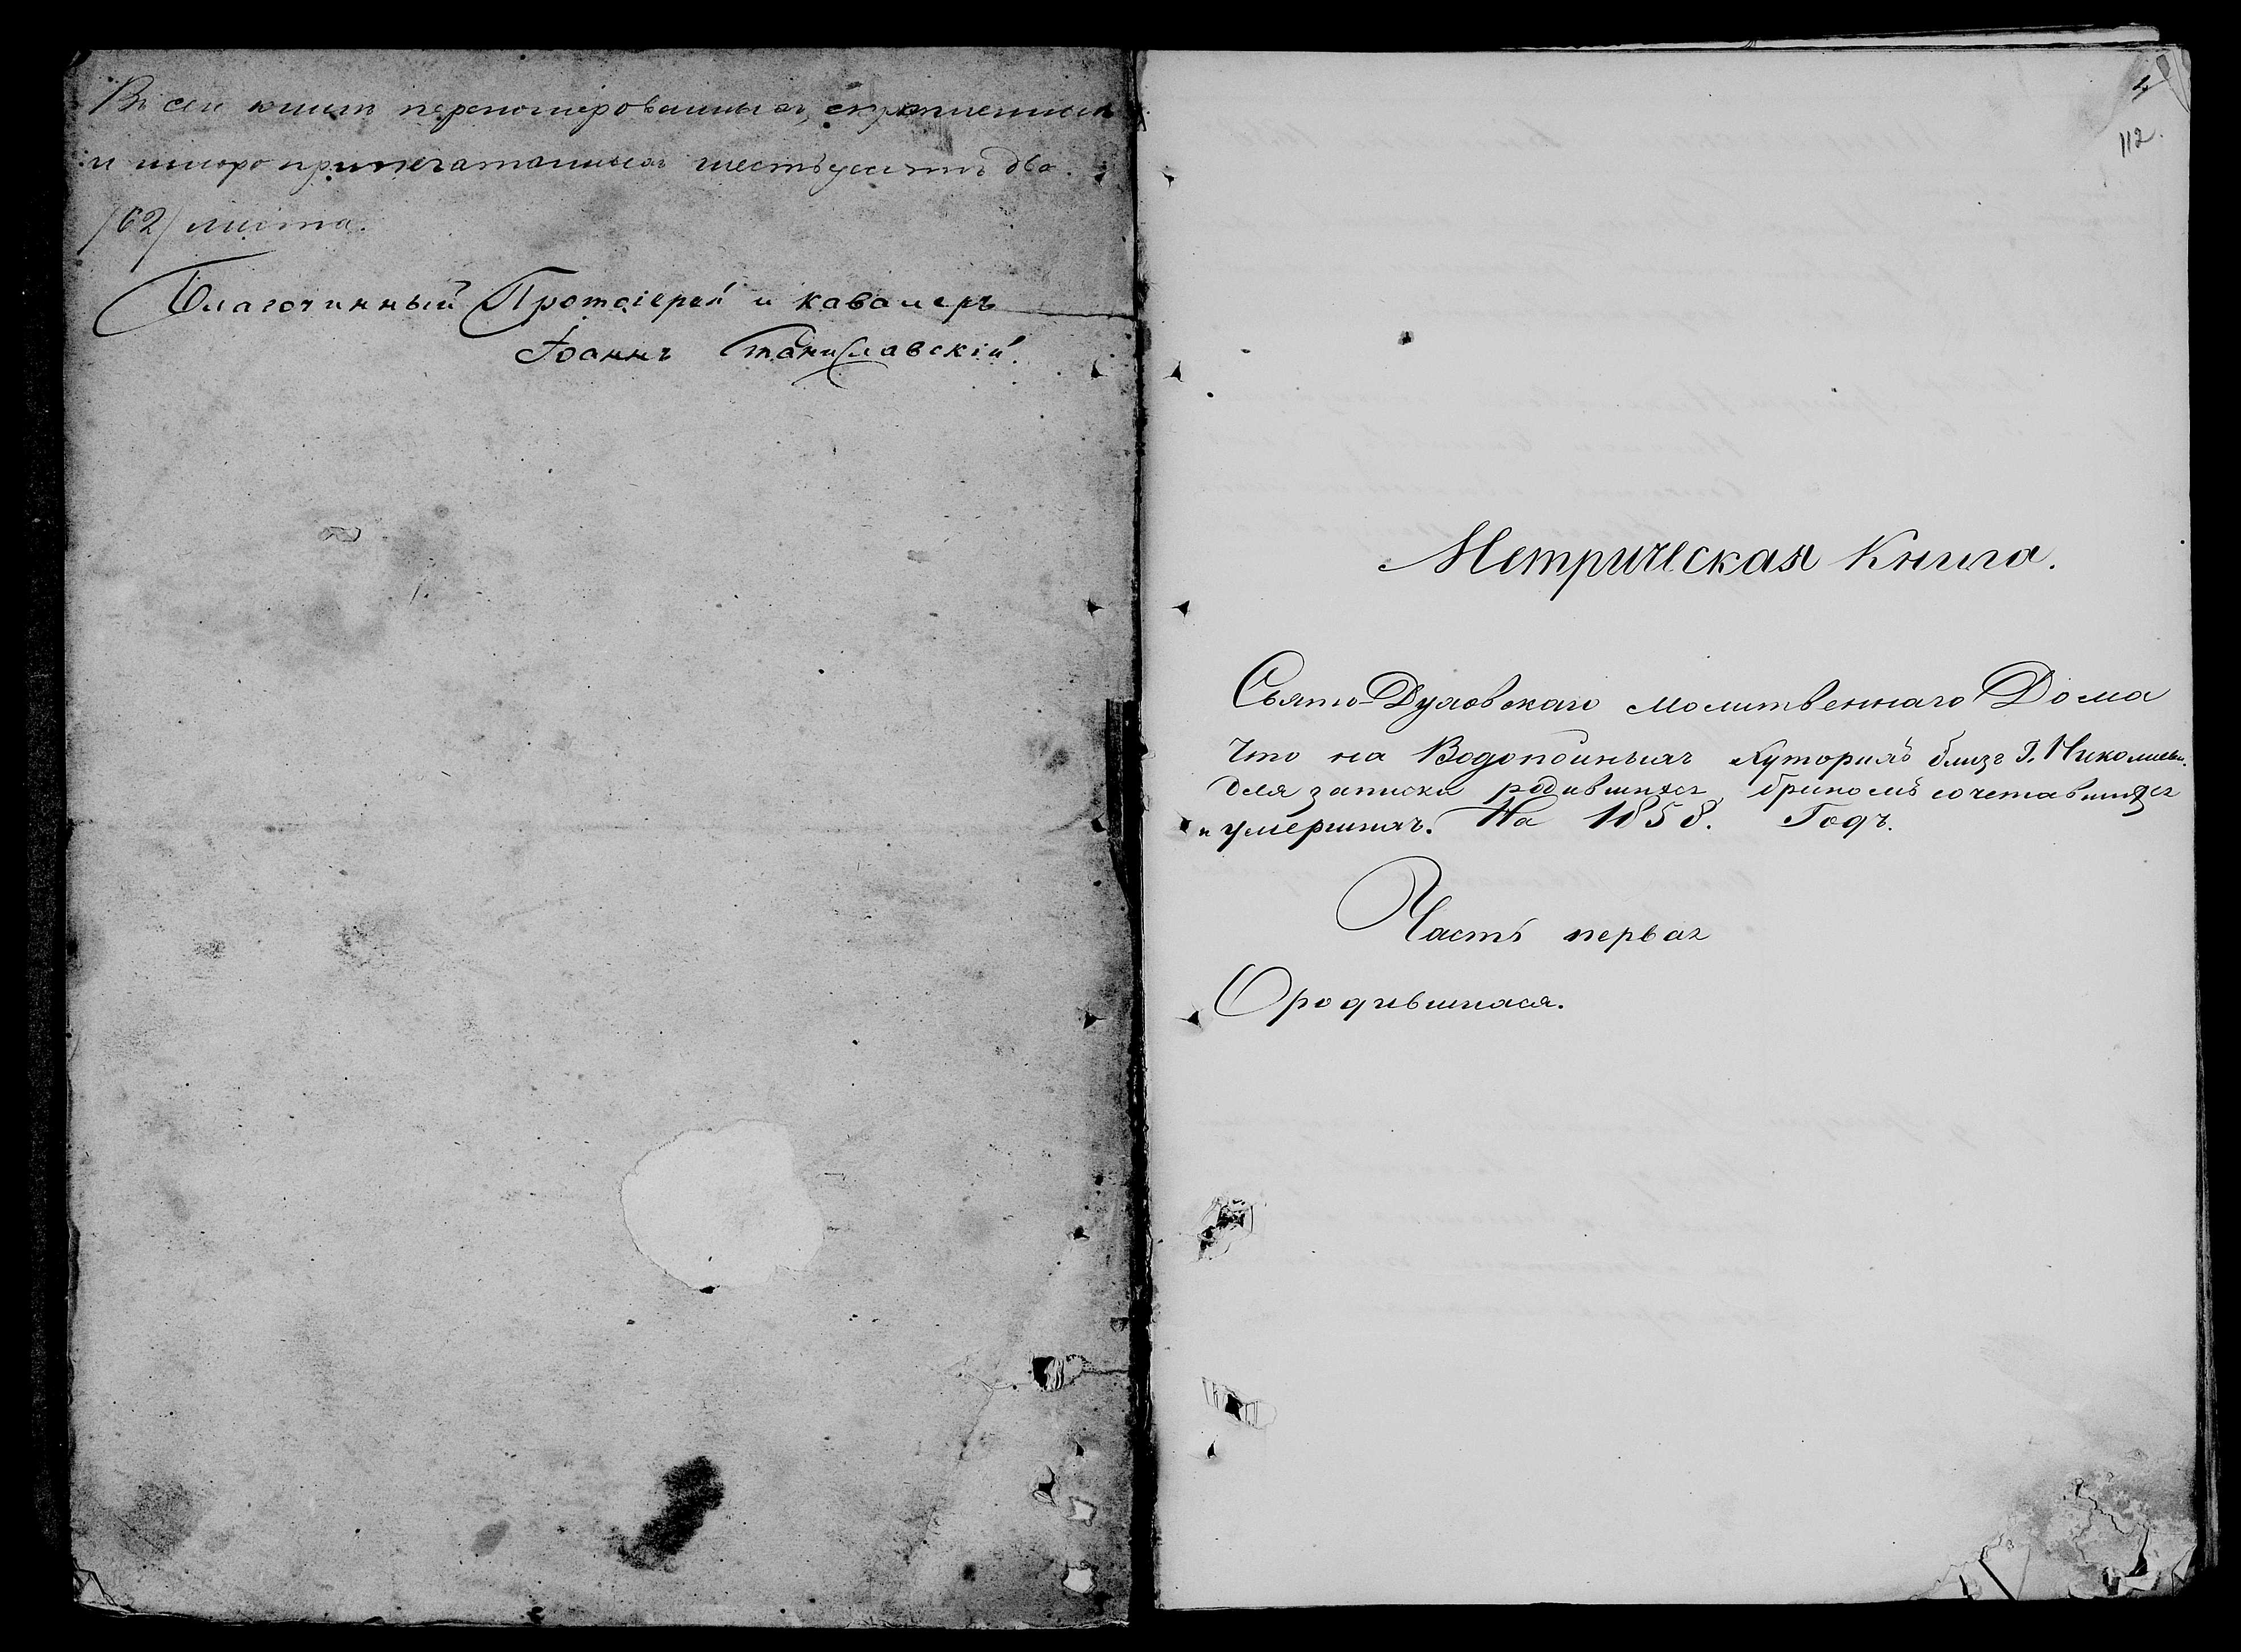 Въ сей книгѣ перенумерованныхъ, скрѣпленныхъ
и шнуро припечатанныхъ шестьдесятъ два
/62/ листа.
Благочинный Протоіерей и кавалеръ
Іоаннъ Станиславскій.
4
112.
Метрическая Книга.
Свято-Духовскаго Молитвеннаго Дома
что на Водопойныхъ Хуторахъ близь Г. Николаева.
для записки родившихся, бракомъ сочетавшихся
и умершихъ. На 1858. Годъ.
Часть первая
О родившихся.